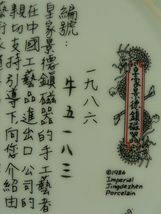 編號：
皇家景德鎮磁器的手工藝者
在中國工藝品進出口公司的
親切支持引導下向您介紹由
一九八六
牛五一八三
皇家景德鎮磁器
©1986
Imperial
Jingdezhen
Porcelain